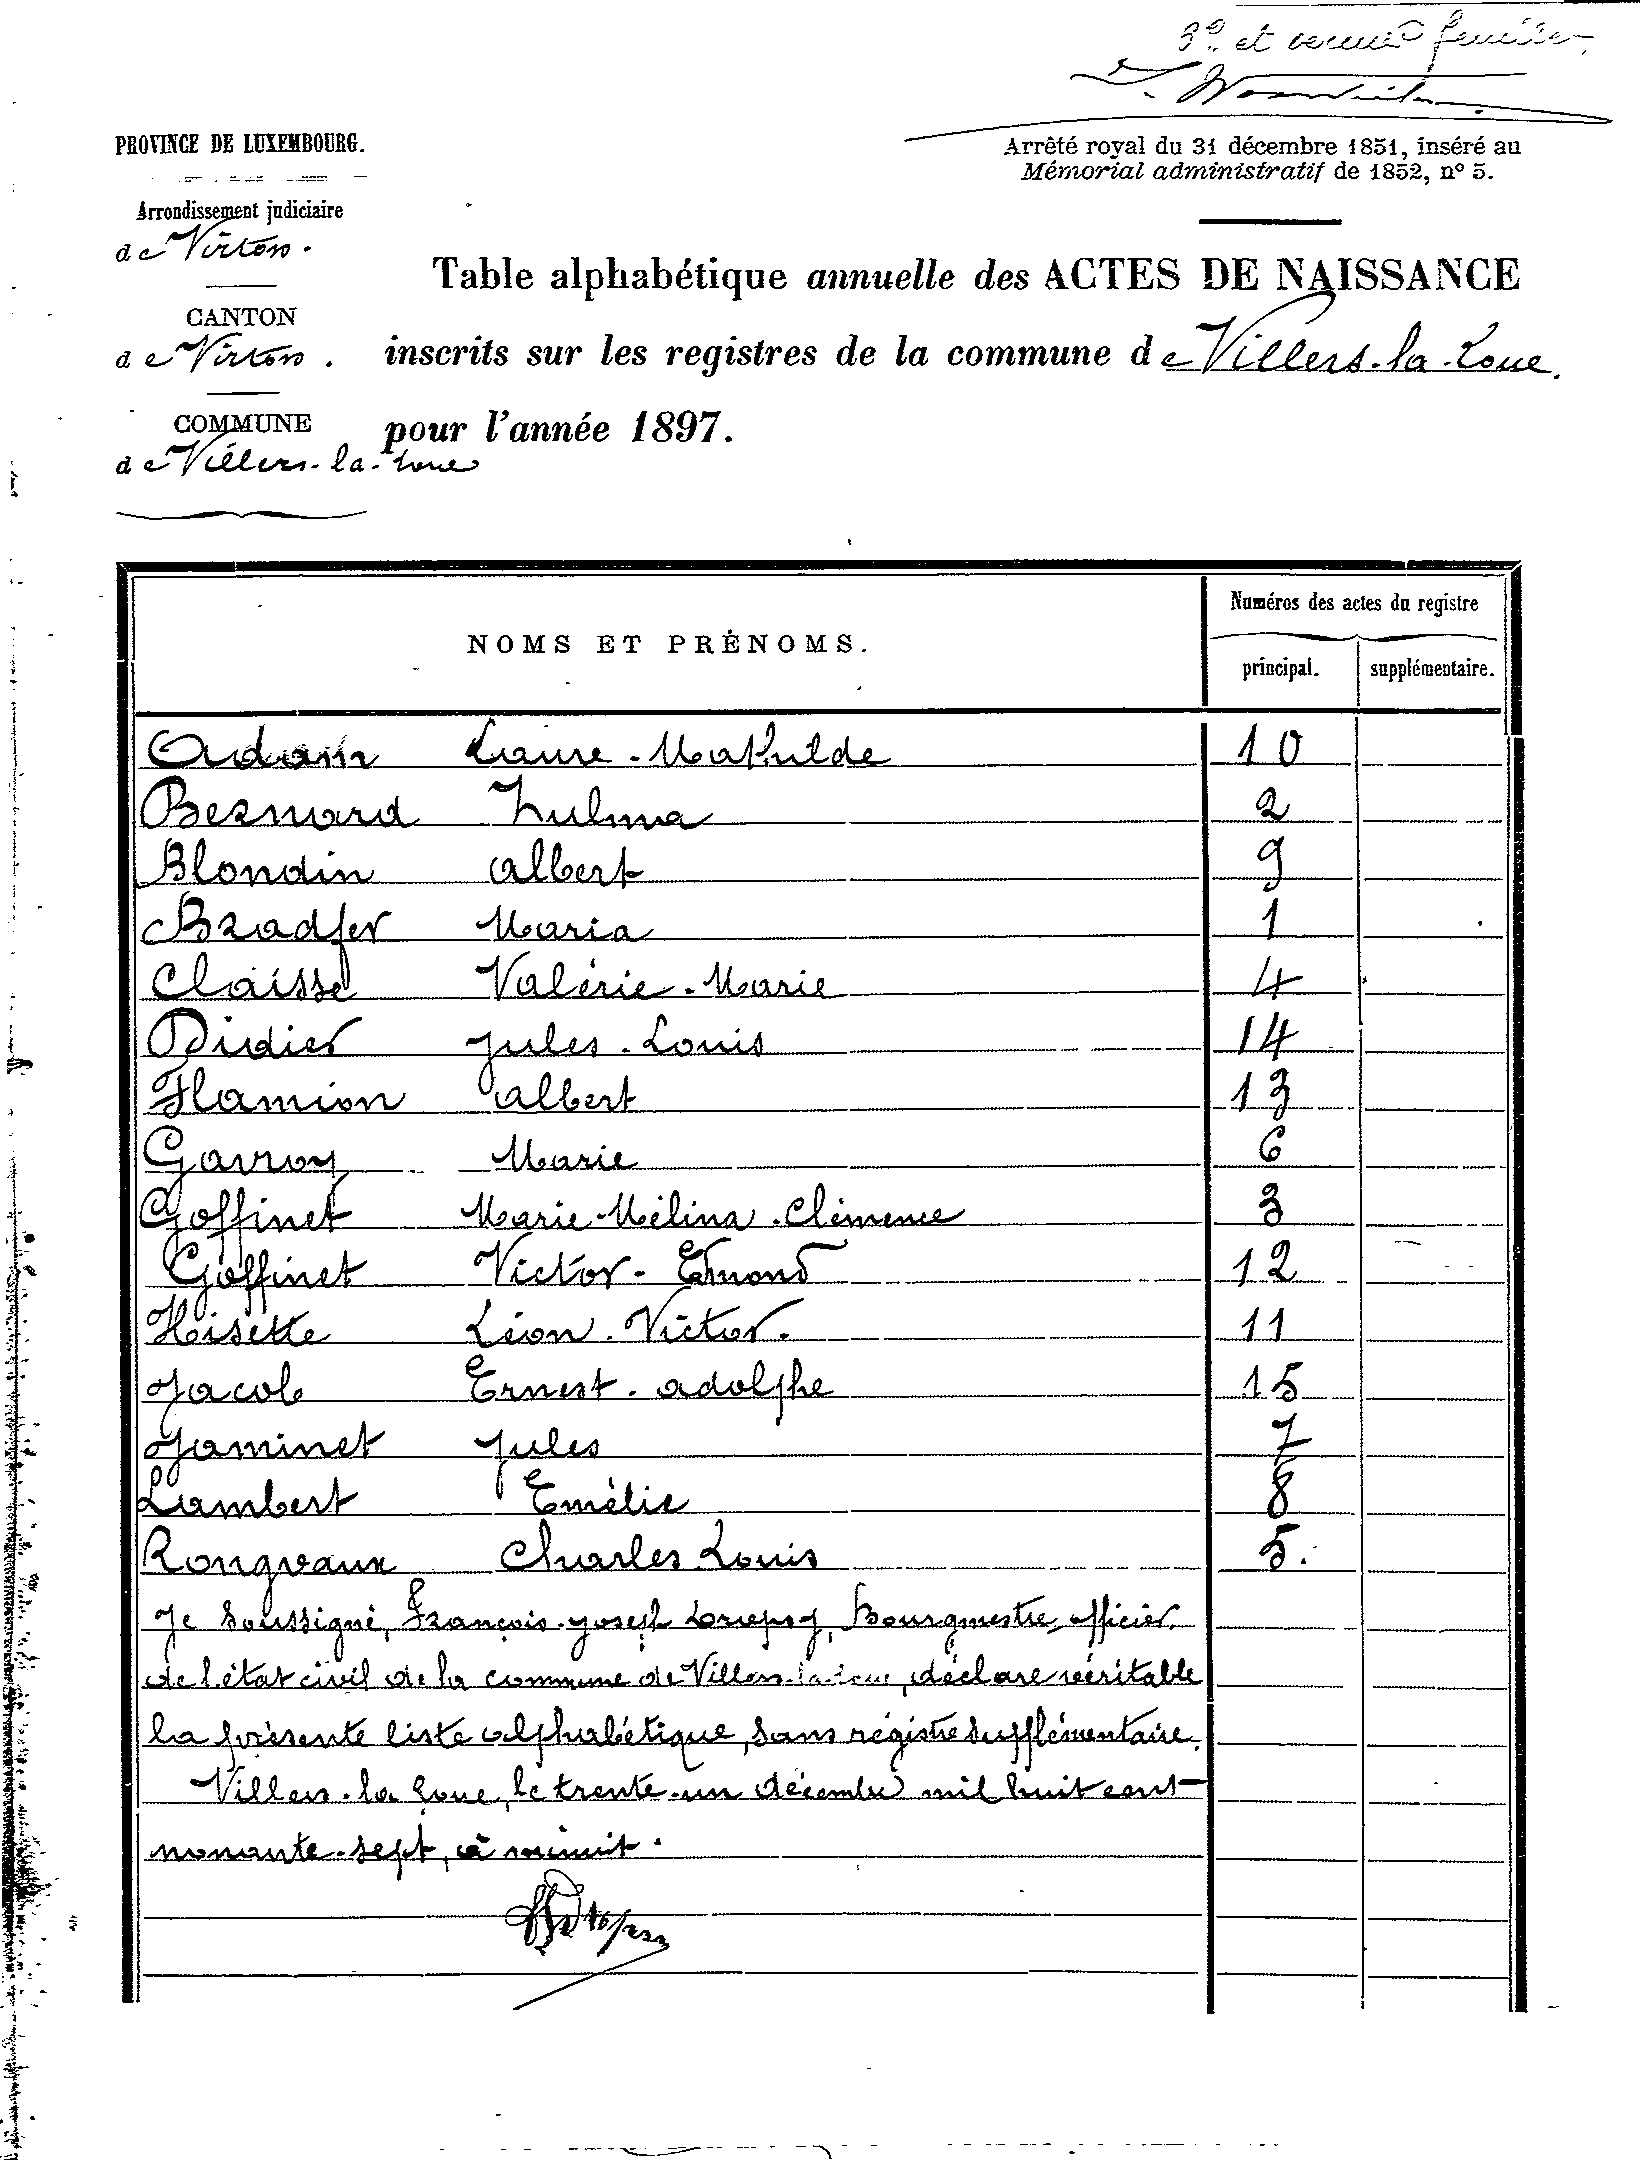 3e et dernier feuillet
PROVINCE DE LUXEMBOURG.
Arrêté royal du 31 décembre 1851, inséré au
Mémorial administratif de 1852, nº 5.
Arrondissement judiciaire
de Virton.
CANTON
de Virton.
COMMUNE
de Villers-la-Loue
Table alphabétique annuelle des ACTES DE NAISSANCE
inscrits sur les registres de la commune de Villers-la-Loue.
pour l'année 1897.
NOMS ET PRÉNOMS.
Numéros des actes du registre
principal. supplémentaire.
Adam Laure-Mathilde 10
Besnard Zulma 2
Blondin Albert 9
Bradfer Maria 1
Claisse Valérie-Marie 4
Didier Jules-Louis 14
Flamion Albert 13
Gavroy Marie 6
Goffinet Marie-Mélina-Clémence 3
Goffinet Victor-Edmond 12
Hisette Léon-Victor. 11
Jacob Ernest-Adolphe 15
Jaminet Jules 7
Lambert Emélie 8
Rongvaux Charles Louis 5.
Je soussigné, François-Joseph, Bourgmestre, officier
de l'état civil de la commune de Villers-la-Loue, déclare véritable
la présente liste alphabétique, sans régistre supplémentaire.
Villers-la-Loue, le trente-un décembre mil huit cent
nonante-sept, à minuit.